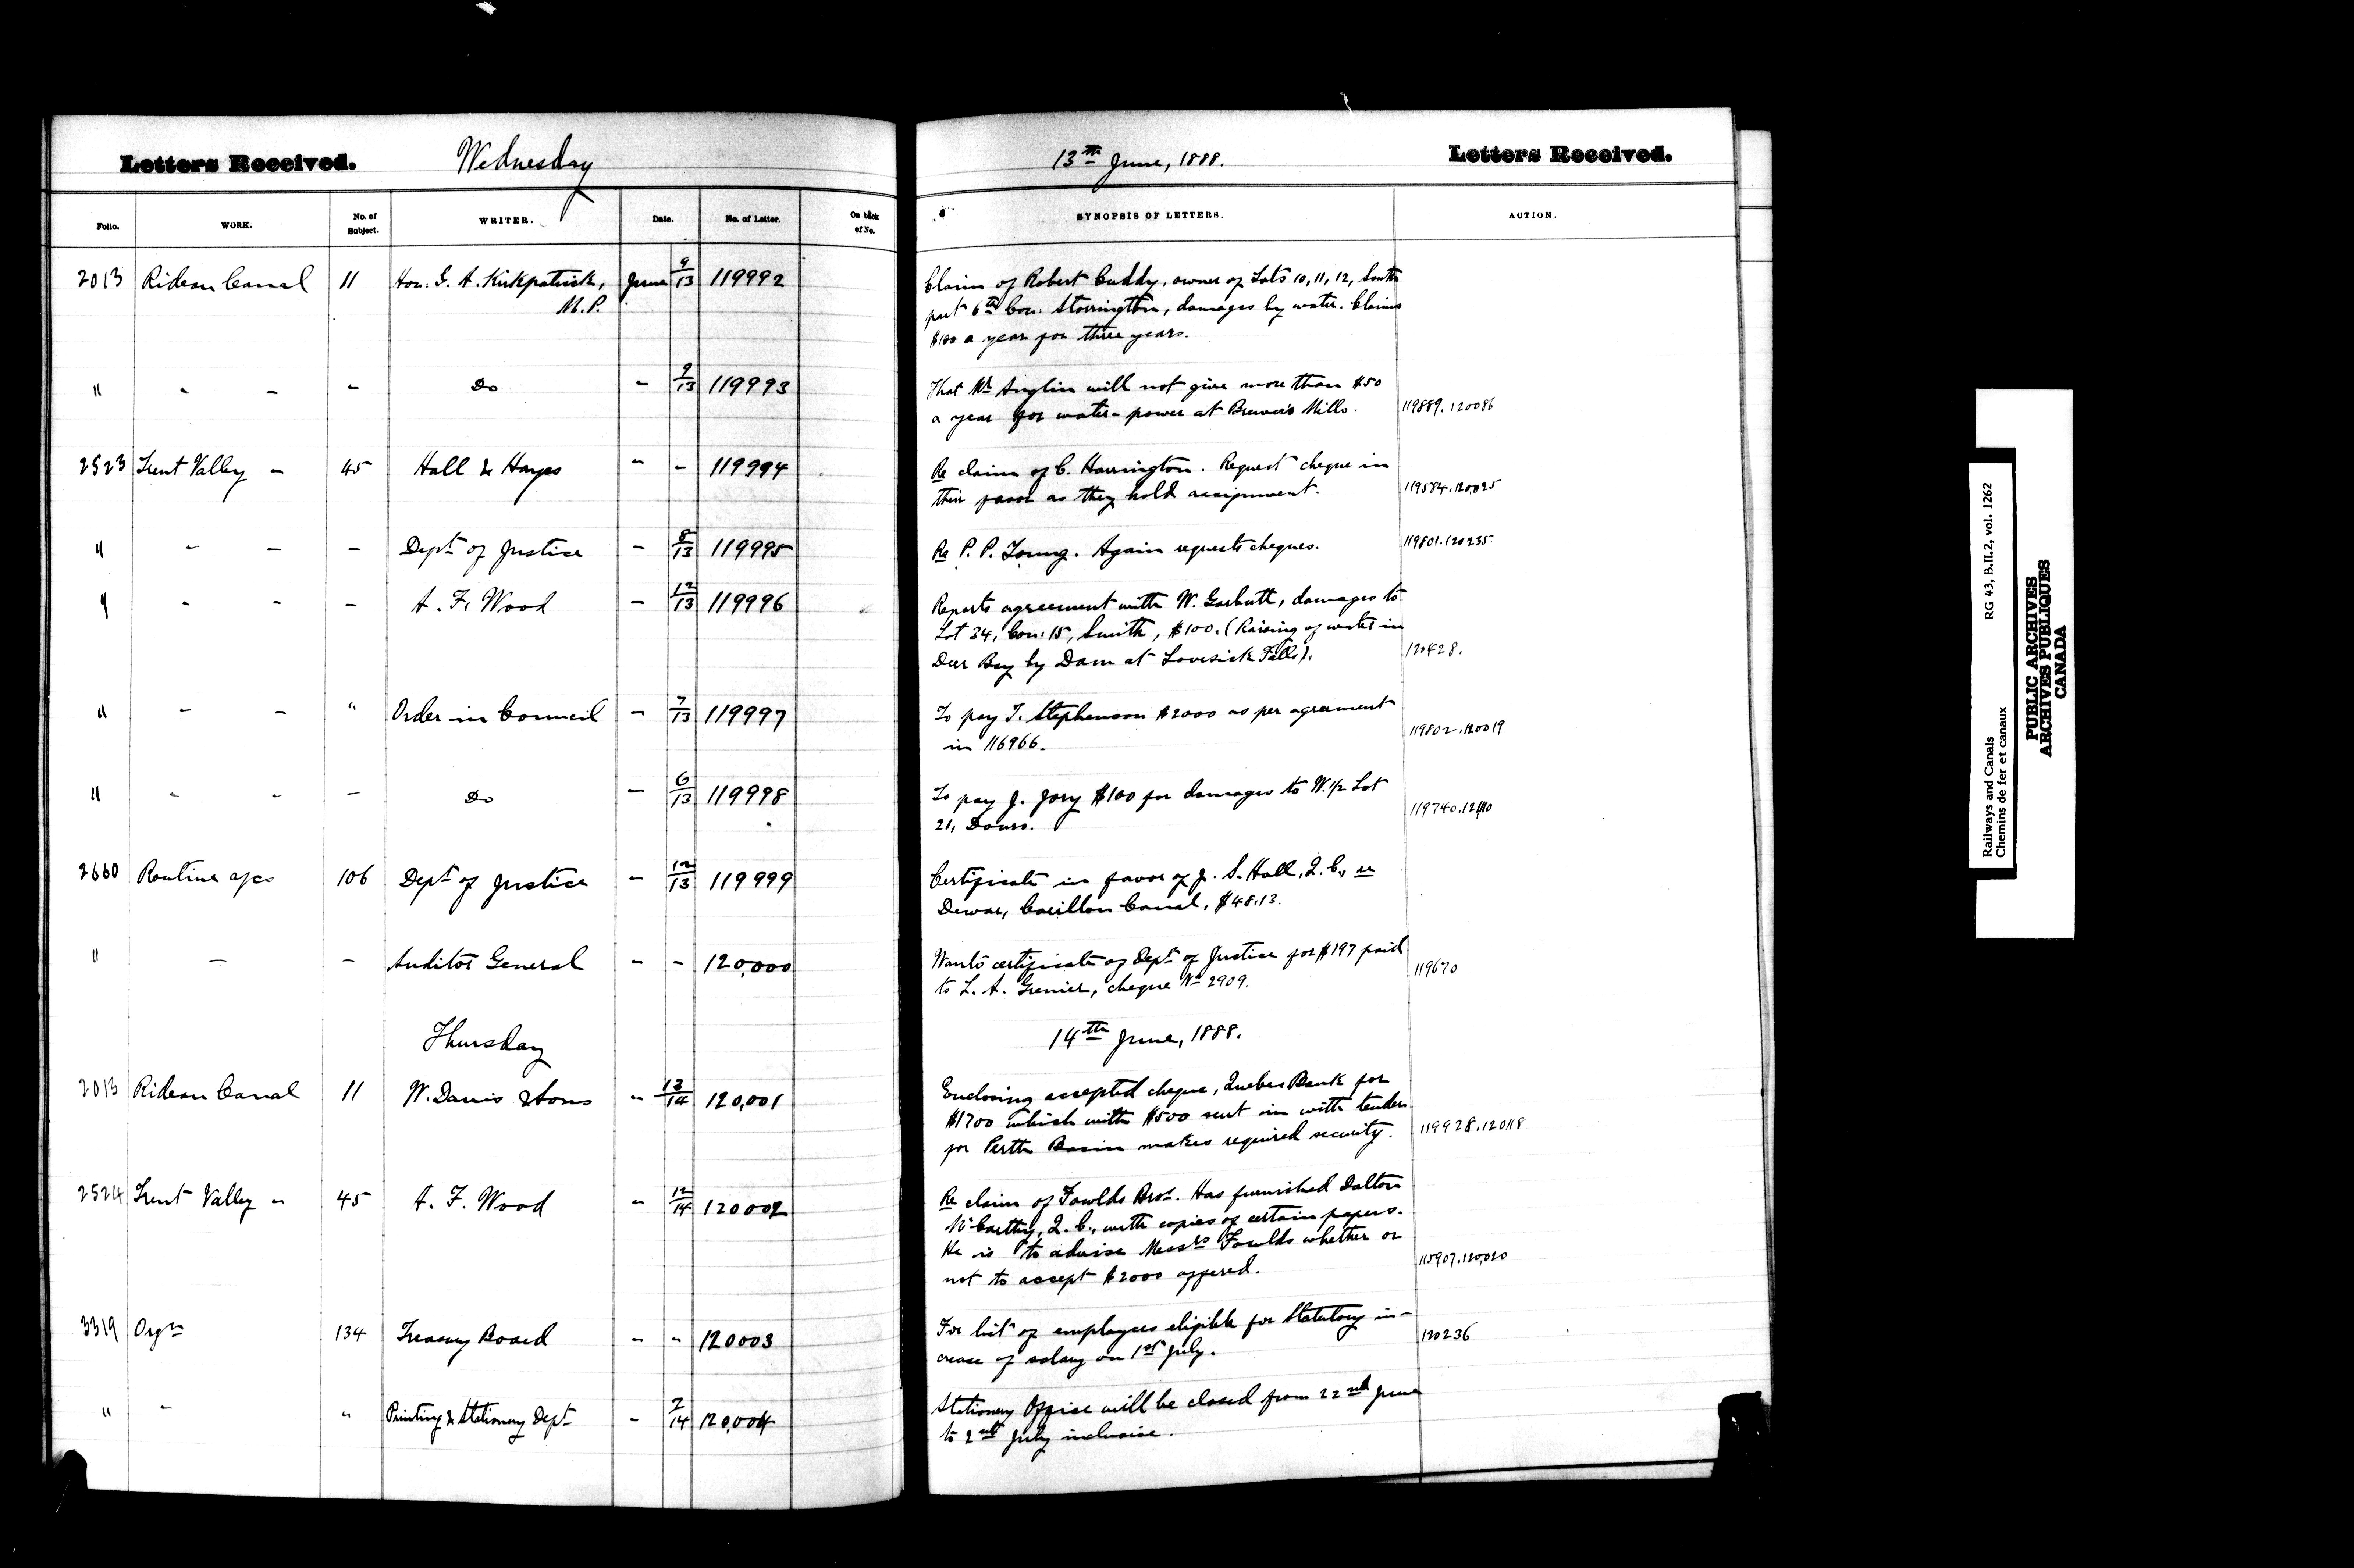 Letters Received. Wednesday 13th June, 1888. Letters Received.
Folio. WORK. No. of Subject. WRITER. Date. No. of Letter. On back of No. SYNOPSIS OF LETTERS. ACTION.
2013 Rideau Canal 11 Hon: G. A. Kirkpatrick, June 9/13 119992 Claim of Robert Cuddy, owner of Lots 10, 11, 12, South
M.P. part 6th Con: Storrington, damages by water. Claims
$100 a year for three years.
" " - - Do - 9/13 119993 That Mr Anglin will not give more than $50
a year for water-power at Brewer's Mills. 119889. 120086
2523 Trent Valley - 45 Hall & Hayes " - 119994 Re claim of C. Harrington. Request cheque in
their favor as they hold assignment. 119584. 120,025
" - - - Dept of Justice - 8/13 119995 Re P. P. Young. Again requests cheques. 119801. 120235
" - - - A. F. Wood - 12/13 119996 Reports agreement with W. Garbutt, damages to
Lot 34, Con: 15, Smith, $100. (Raising of water in
Deer Bay by Dam at Lovesick Falls). 120428.
" - - " Order in Council - 7/13 119997 To pay T. Stephenson $2000 as per agreement
in 116966. 119802. 120019
" - - - Do - 6/13 119998 To pay J. Jory $100 for damages to W. 1/2 Lot
21, Douro. 119740.
2660 Routine a/cs 106 Dept of Justice - 12/13 119999 Certificate in favor of J. S. Hall, Q.C., re
Dewar, Carillon Canal, $48.13.
" - - Auditor General - - 120,000 Wants certificate of Dept of Justice for $197 paid
to L. A. Grenier, cheque No 2909. 119670
Thursday 14th June, 1888.
2013 Rideau Canal 11 W. Davis & Sons " 13/14 120,001 Enclosing accepted cheque, Quebec Bank for
$1700 which with $500 sent in with tender
for Perth Basin makes required security. 119928. 120118
2524 Trent Valley " 45 A. F. Wood - 12/14 120002 Re claim of Fowlds Bros. Has furnished Dalton
McCarthy, Q.C., with copies of certain papers.
He is to advise Messrs Fowlds whether or
not to accept $2000 offered. 115907. 120,020
3319 Orgn 134 Treasury Board - " 120003 For list of employees eligible for Statutory in-
crease of salary on 1st July. 120236
" - " Printing & Stationery Dept - 2/14 120,004 Stationery Office will be closed from 22nd June
to 2nd July inclusive.
Railways and Canals RG 43, B.III.2, vol. 1262
Chemins de fer et canaux
PUBLIC ARCHIVES
ARCHIVES PUBLIQUES
CANADA